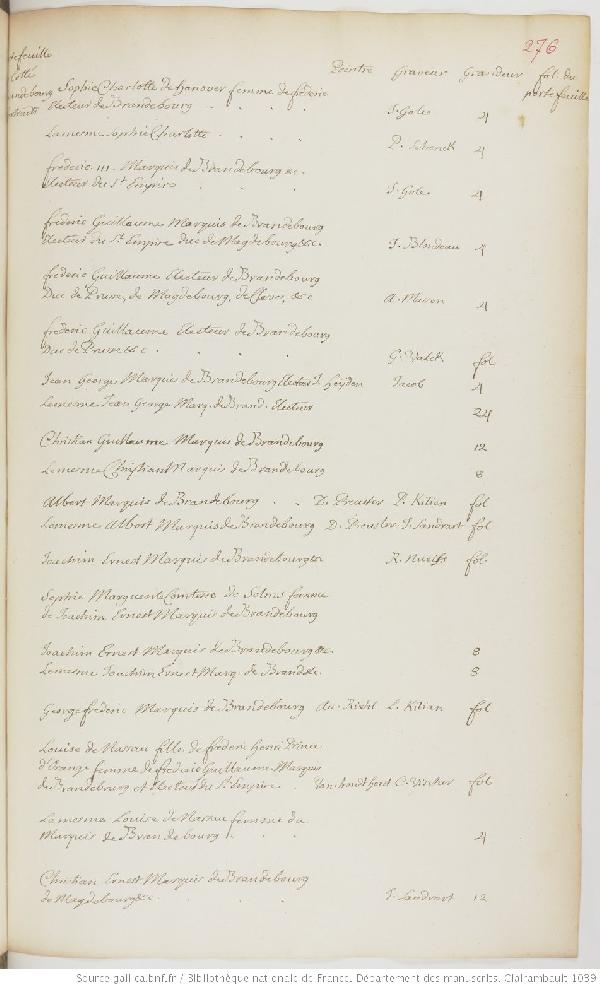 276
Peintre Graveur Grandeur fol. du
porte feuille
Sophie Charlotte de hanover femme de frederic
Electeur de Brandebourg . . . . J. Gole 4
Lamesme Sophie Charlotte . . . P. Schenck 4
frederic III. Marquis de Brandebourg &c.
Electeur du St. Empire . . . J. Gole 4
frederic Guillaume Marquis de Brandebourg
Electeur du St. Empire duc de Magdebourg &c. J. Blondeau 4
frederic Guillaume Electeur de Brandebourg
Duc de Prusse, de Magdebourg, de Cleves, &c A. 4
frederic Guillaume Electeur de Brandebourg
Duc de Prusse &c . . . . G. Valck fol
Jean George Marquis de Brandebourg Electeur J. heyden Jacob 4
Lemesme Jean George Marq. de Brand. Electeur 24
Christian Guillaume Marquis de Brandebourg 12
Lemesme Christian Marquis de Brandebourg 8
Albert Marquis de Brandebourg . . D. Preusler P. Kilian fol
Lemesme Albert Marquis de Brandebourg D. Preusler J. Sandrart fol
Joachim Ernest Marquis de Brandebourg &c R. fol.
Sophie Comtesse de Solms femme
de Joachim Ernest Marquis de Brandebourg
Joachim Ernest Marquis de Brandebourg &c. 8
Lemesme Joachim Ernest Marq. de Brand &c. 8
George frederic Marquis de Brandebourg L. Kilian fol
Louise de Nassau fille de frederic henri Prince
d'Orange femme de frederic Guillaume Marquis
de Brandebourg et Electeur du St. Empire . Van hondthorst C. Visscher fol
Lamesme Louise de Nassau femme du
Marquis de Brandebourg . . . 4
Christian Ernest Marquis de Brandebourg
de Magdebourg &c. . . . J. Sandrart 12
Source gallica.bnf.fr / Bibliothèque nationale de France. Département des manuscrits. Clairambault 1089